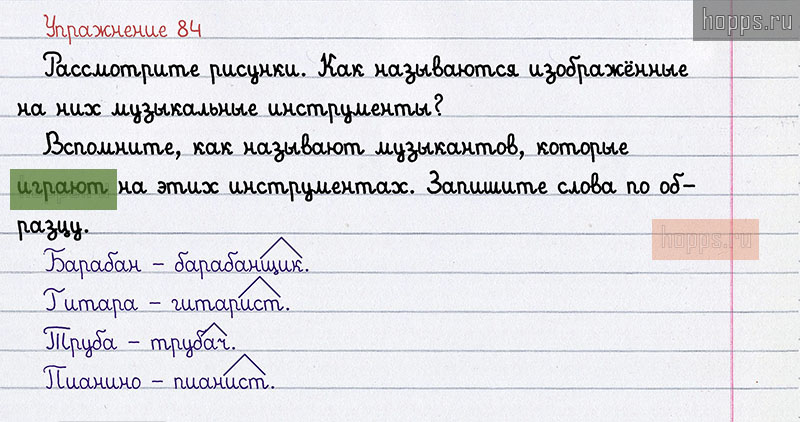 Упражнение 84
hopps.ru
Рассмотрите рисунки. Как называются изображённые
на них музыкальные инструменты?
Вспомните, как называют музыкантов, которые
играют на этих инструментах. Запишите слова по об-
разцу.
hopps.ru
Барабан – барабанщик.
Гитара – гитарист.
Труба – трубач.
Пианино – пианист.